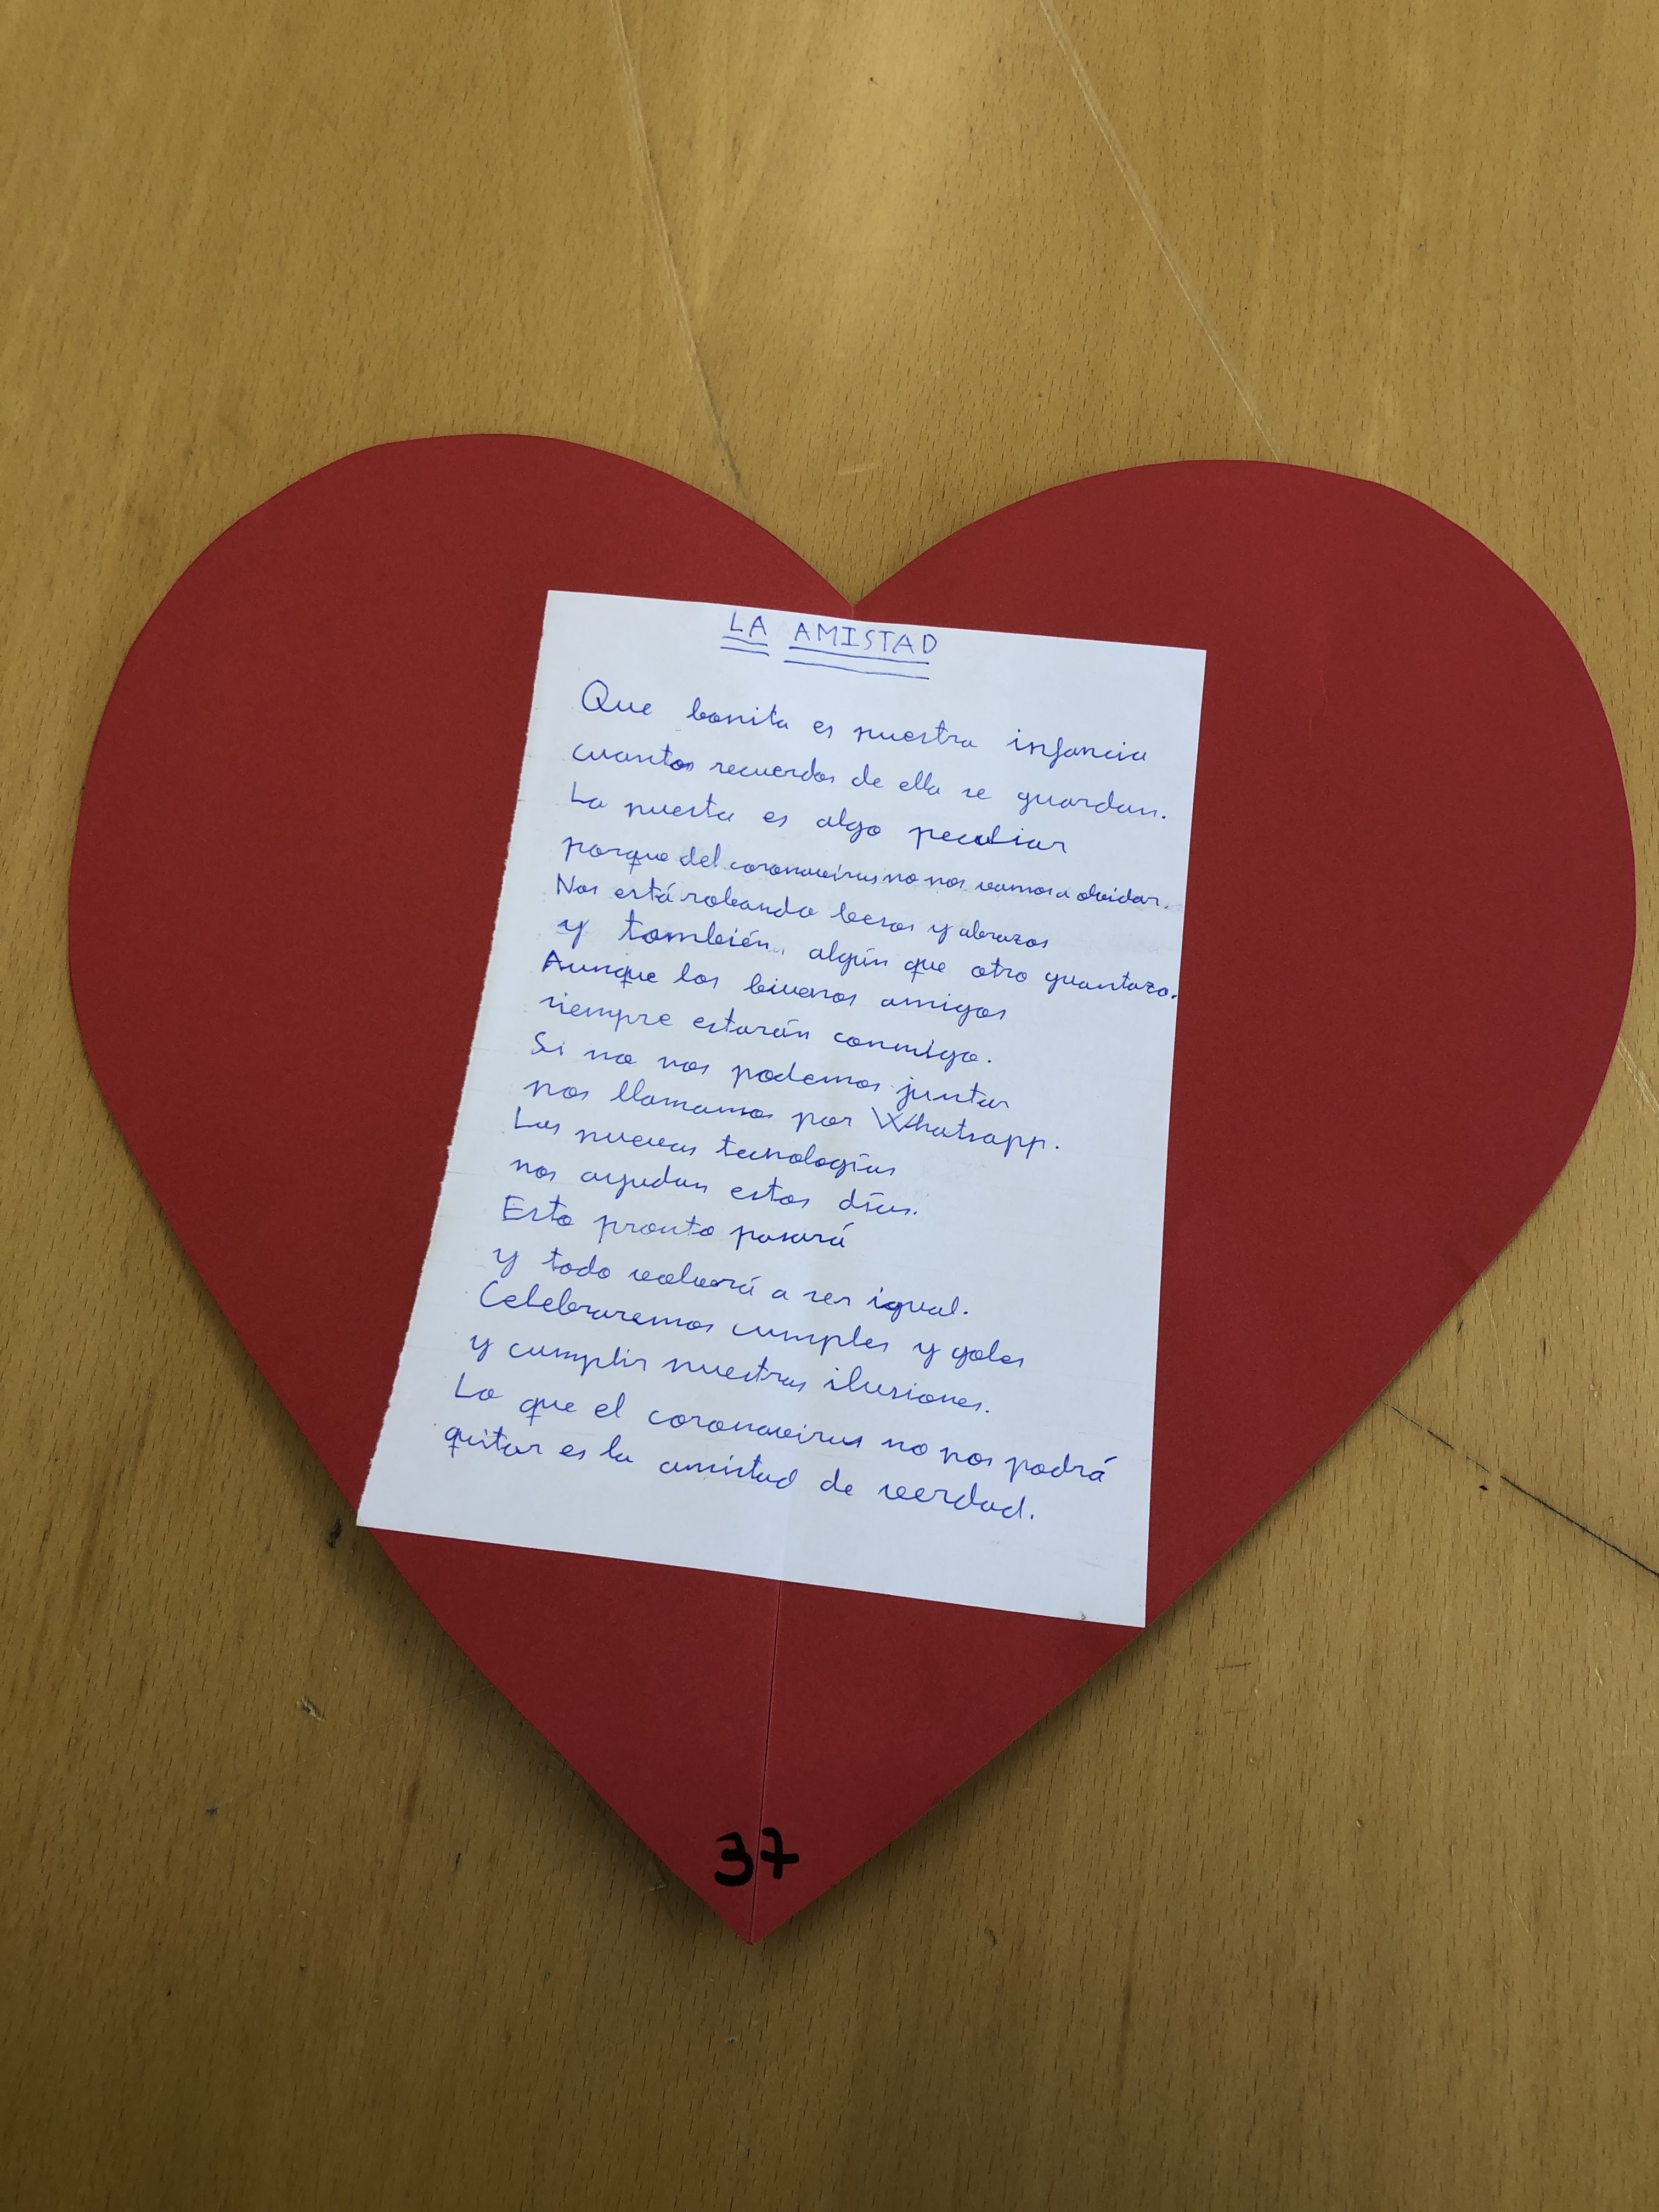 LA AMISTAD
Que bonita es nuestra infancia
cuantos recuerdos de ella se guardan.
La nuestra es algo peculiar
porque del coronavirus no nos vamos a olvidar.
Nos está robando besos y abrazos
y también algún que otro guantazo.
Aunque los buenos amigos
siempre estarán conmigo.
Si no nos podemos juntar
nos llamamos por Whatsapp.
Las nuevas tecnologías
nos ayudan estos días.
Esto pronto pasará
y todo volverá a ser igual.
Celebraremos cumples y goles
y cumplir nuestras ilusiones.
Lo que el coronavirus no nos podrá
quitar es la amistad de verdad.
37